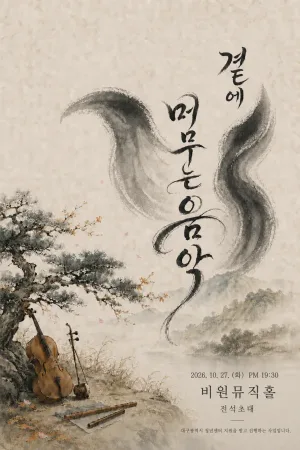 곁에
머무는 음악
2026. 10. 27. (화) PM 19:30
비원뮤직홀
전석초대